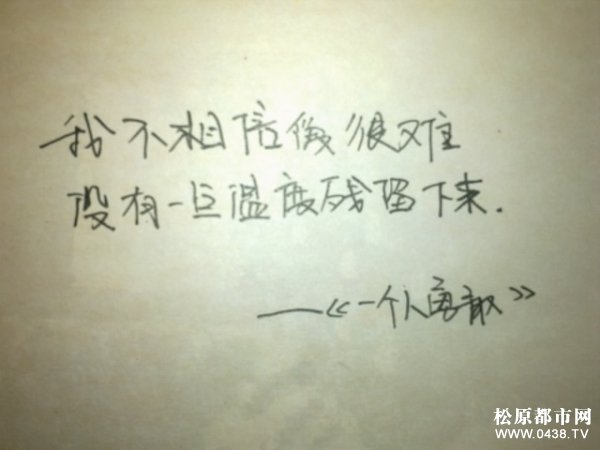 我不相信傲很难
没有一点温度残留下来.
——《一个人勇敢》
松原都市网
WWW.0438.TV